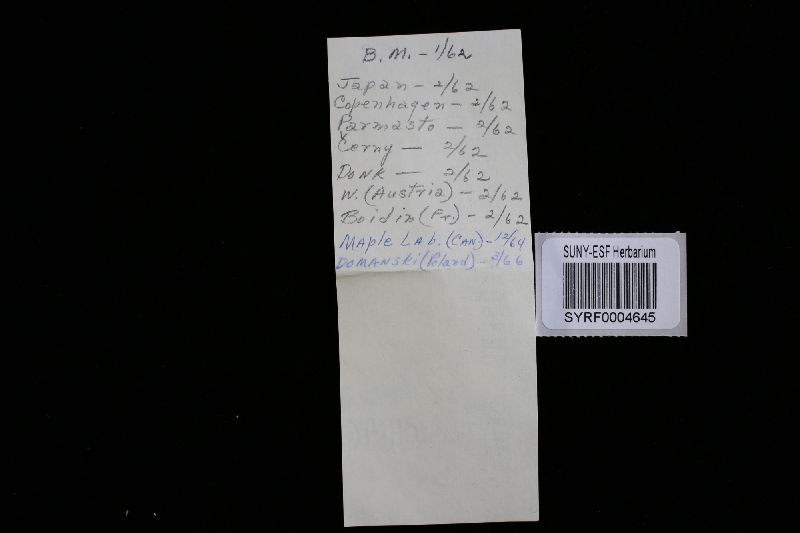 B. M. - 1/62
Japan - 2/62
Copenhagen - 2/62
Parmasto - 2/62
Černy - 2/62
Donk - 2/62
W. (Austria) - 2/62
Boidin (Fr.) - 2/62
Maple Lab. (Can.) - 12/64
Domanski (Poland) - 3/66
SUNY-ESF Herbarium
SYRF0004645